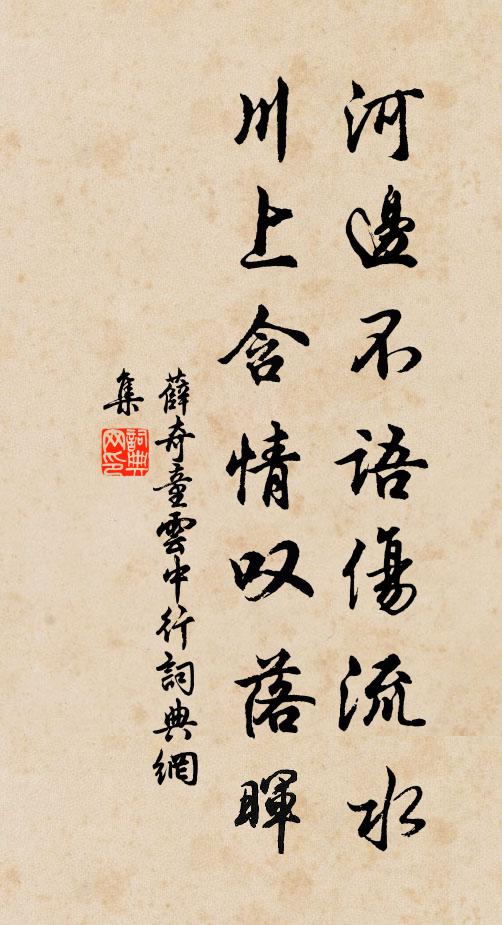 河邊不語傷流水
川上含情叹落暉
薛奇童雲中行詞典網
集
詞典
网印